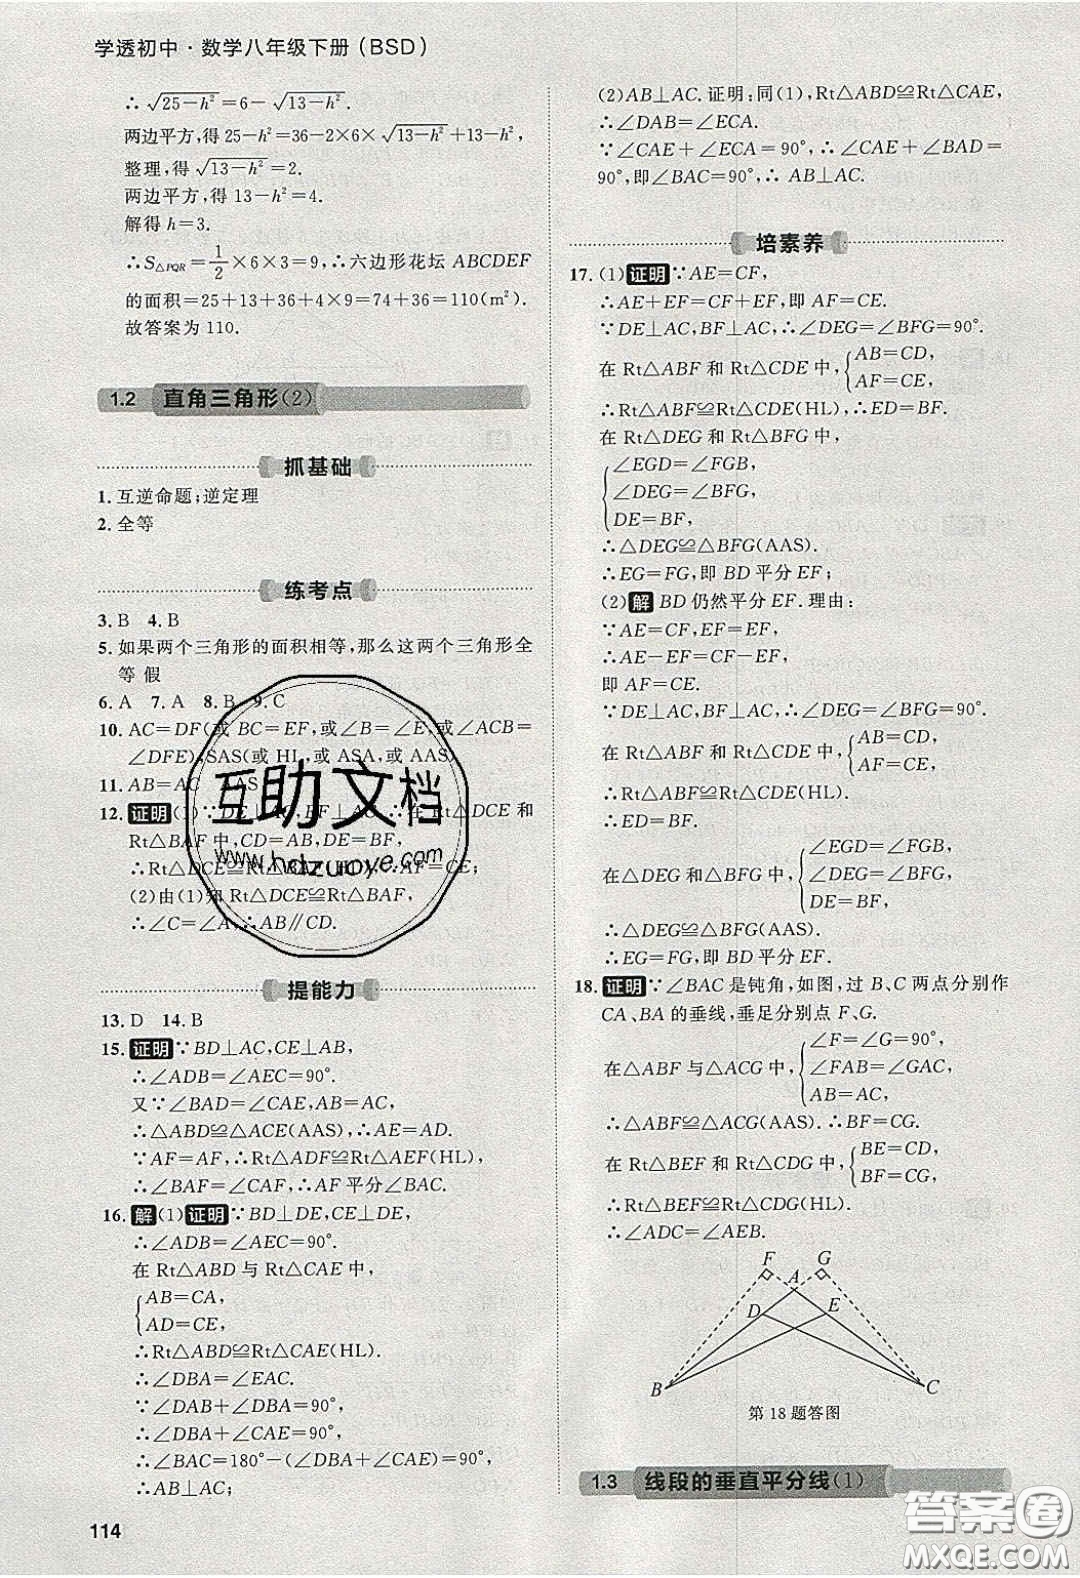 学透初中·数学八年级下册(BSD)
∴√(25-h²)=6-√(13-h²).
两边平方,得25-h²=36-2×6×√(13-h²)+13-h²,
整理,得√(13-h²)=2.
两边平方,得13-h²=4.
解得h=3.
∴S△PQR=1/2×6×3=9,∴六边形花坛ABCDEF
的面积=25+13+36+9=74+36=110(m²).
故答案为110.
1.2 直角三角形(2)
抓基础
1. 互逆命题;逆定理
2. 全等
练考点
3. B 4. B
5. 如果两个三角形的面积相等,那么这两个三角形全
等 假
6. A 7. A 8. B 9. C
10. AC=DF(或BC=EF,或∠B=∠E,或∠ACB=
∠DFE),SAS(或HL,或ASA,或AAS)
11. AB=AC AAS
12. 证明(1)∵DE⊥AC,BF⊥AC,∴在Rt△DCE和
Rt△BAF中,CD=AB,DE=BF,
∴Rt△DCE≌Rt△BAF(HL),∴AF=CE;
(2)由(1)知Rt△DCE≌Rt△BAF,
∴∠C=∠A,∴AB∥CD.
互助文档
www.hdzuoye.com
提能力
13. D 14. B
15. 证明∵BD⊥AC,CE⊥AB,
∴∠ADB=∠AEC=90°.
又∵∠BAD=∠CAE,AB=AC,
∴△ABD≌△ACE(AAS),∴AE=AD.
∵AF=AF,∴Rt△ADF≌Rt△AEF(HL),
∴∠CAF=∠BAF,∴AF平分∠BAC.
16. 解(1)证明∵BD⊥DE,CE⊥DE,
∴∠ADB=∠AEC=90°.
在Rt△ABD与Rt△CAE中,
AB=CA,
AD=CE,
∴Rt△ABD≌Rt△CAE(HL).
∴∠DBA=∠EAC.
∵∠BAD+∠DBA=90°,
∴∠DBA+∠CAE=90°,
∴∠BAC=180°-(∠DBA+∠CAE)=90°,
∴AB⊥AC;
(2)AB⊥AC.证明:同(1),Rt△ABD≌Rt△CAE,
∴∠DAB=∠ECA.
∵∠CAE+∠ECA=90°,∴∠CAE+∠BAD=
90°,即∠BAC=90°,∴AB⊥AC.
培素养
17. (1)证明∵AE=CF,
∴AE+EF=CF+EF,即AF=CE.
∵DE⊥AC,BF⊥AC,∴∠DEG=∠BFG=90°.
在Rt△ABF和Rt△CDE中,{AB=CD,
AF=CE,
∴Rt△ABF≌Rt△CDE(HL),∴ED=BF.
在Rt△DEG和Rt△BFG中,
∠EGD=∠FGB,
∠DEG=∠BFG,
DE=BF,
∴△DEG≌△BFG(AAS).
∴EG=FG,即BD平分EF;
(2)解BD仍然平分EF.理由:
∵AE=CF,EF=EF,
∴AE-EF=CF-EF,
即AF=CE.
∵DE⊥AC,BF⊥AC,∴∠DEG=∠BFG=90°.
在Rt△ABF和Rt△CDE中,{AB=CD,
AF=CE,
∴Rt△ABF≌Rt△CDE(HL).
∴ED=BF.
在△DEG和△BFG中,{∠EGD=∠FGB,
∠DEG=∠BFG,
DE=BF,
∴△DEG≌△BFG(AAS).
∴EG=FG,即BD平分EF.
18. 证明∵∠BAC是钝角,如图,过B、C两点分别作
CA、BA的垂线,垂足分别点F、G.
在△ABF与△ACG中,{∠F=∠G=90°,
∠FAB=∠GAC,
AB=AC,
∴△ABF≌△ACG(AAS),∴BF=CG.
在Rt△BEF和Rt△CDG中,{BE=CD,
BF=CG,
∴Rt△BEF≌Rt△CDG(HL).
∴∠ADC=∠AEB.
F A G
D E
B C
第18题答图
1.3 线段的垂直平分线(1)
114
答案圈
MXQE.COM